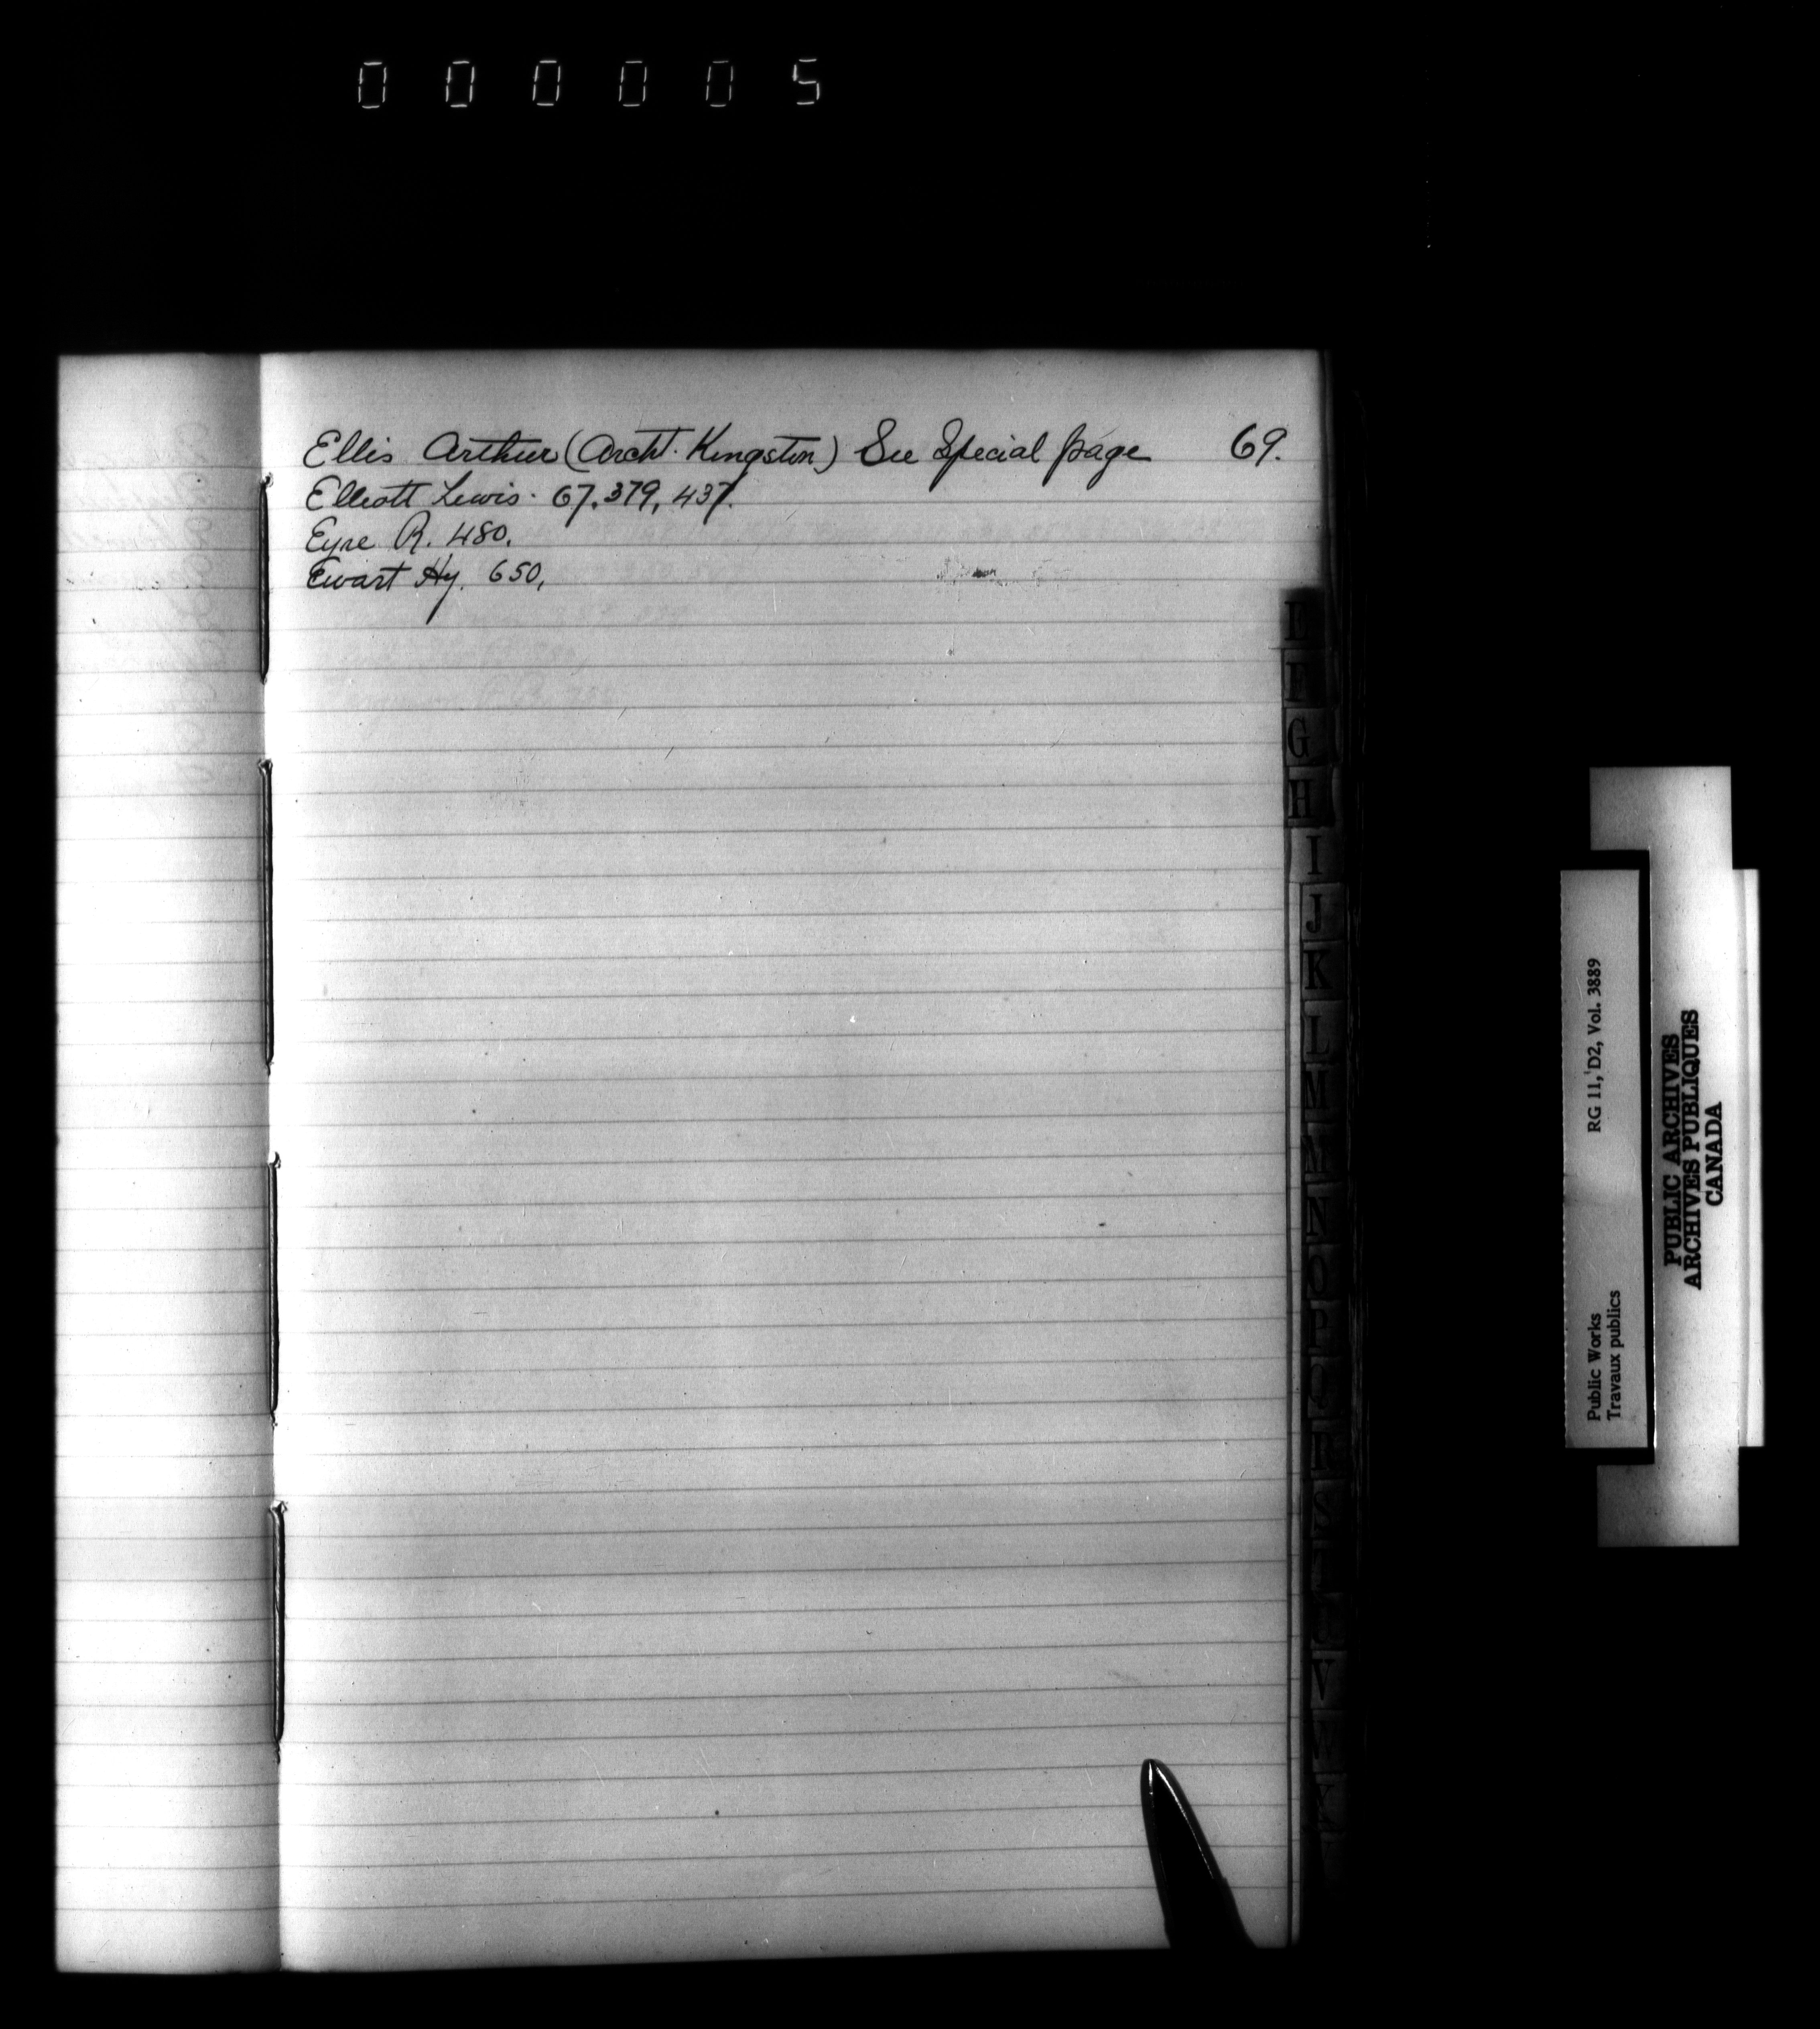 000005
Ellis Arthur (Archt. Kingston) See Special page 69.
Elliott Lewis. 67, 379, 437.
Eyre R. 480.
Ewart Hy. 650,
G
H
I
J
K
L
M
N
O
P
Q
R
S
T
V
W
Public Works
Travaux publics
RG 11, D2, Vol. 3889
PUBLIC ARCHIVES
ARCHIVES PUBLIQUES
CANADA